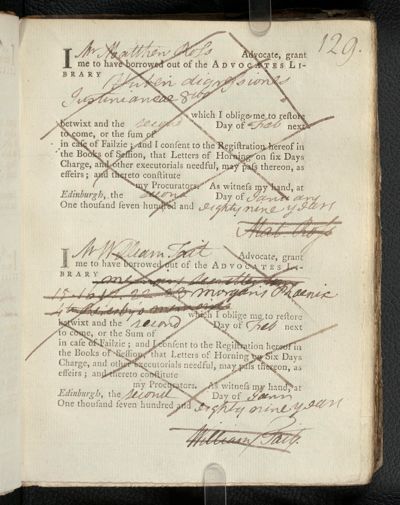 129.
I Mr Matthew Ross Advocate, grant
me to have borrowed out of the ADVOCATES LI-
BRARY digressiones
Justinianeae 8vo
which I oblige me to restore
betwixt and the second Day of Feb next
to come, or the sum of
in case of Failzie; and I consent to the Registration hereof in
the Books of Session, that Letters of Horning on six Days
Charge, and other executorials needful, may pass thereon, as
effeirs; and thereto constitute
my Procurators. As witness my hand, at
Edinburgh, the second Day of January
One thousand seven hundred and eighty nine years
Mat. Ross
I Mr William Tait Advocate, grant
me to have borrowed out of the ADVOCATES LI-
BRARY
Morgan's Phoenix
which I oblige me to restore
betwixt and the second Day of Feb next
to come, or the Sum of
in case of Failzie; and I consent to the Registration hereof in
the Books of Session, that Letters of Horning on Six Days
Charge, and other executorials needful, may pass thereon, as
effeirs; and thereto constitute
my Procurators. As witness my hand, at
Edinburgh, the second Day of Jann
One thousand seven hundred and eighty nine years
William Tait.